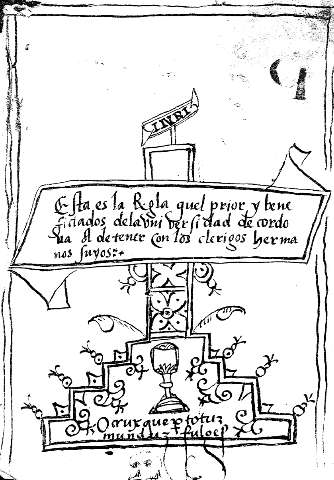 INRI
Esta es la Regla quel prior y bene
ficiados dela vni versidad de cordo
ua a de tener con los clerigos herma
nos suyos
O crux que